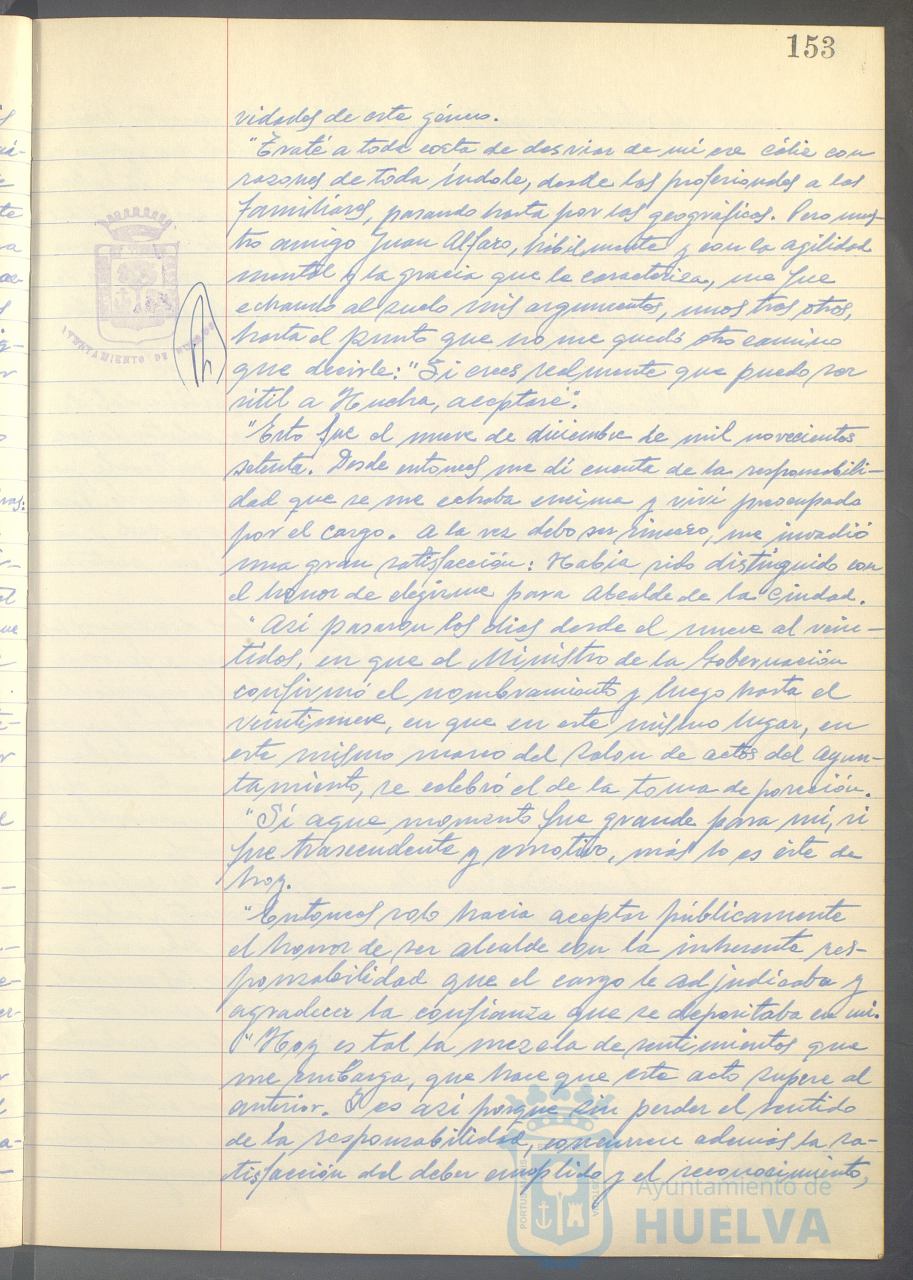 153
vidades de este género.
"Traté a toda costa de desviar de mí ese cáliz con
razones de toda índole, desde las profesionales a las
familiares, pasando hasta por las geográficas. Pero nues-
tro amigo Juan Alfaro, hábilmente y con la agilidad
mental y la gracia que le caracteriza, me fue
echando al suelo mis argumentos, unos tras otros,
hasta el punto que no me quedó otro camino
que decirle: "Si crees realmente que puedo ser
útil a Huelva, aceptaré".
"Esto fue el nueve de diciembre de mil novecientos
setenta. Desde entonces me dí cuenta de la responsabili-
dad que se me echaba encima y viví preocupado
por el cargo. A la vez debo ser sincero, me invadió
una gran satisfacción: Había sido distinguido con
el honor de elegirme para Alcalde de la Ciudad.
"Así pasaron los días desde el nueve al vein-
tidos, en que el Ministro de la Gobernación
confirmó el nombramiento y luego hasta el
veintinueve, en que en este mismo lugar, en
este mismo marco del Salon de actos del Ayun-
tamiento, se celebró el de la toma de posesión.
"Si aque momento fue grande para mí, si
fue trascendente y emotivo, más lo es éste de
hoy.
"Entonces solo hacia aceptar públicamente
el honor de ser alcalde con la inherente res-
ponsabilidad que el cargo le adjudicaba y
agradecer la confianza que se depositaba en mi.
"Hoy es tal la mezcla de sentimientos que
me embarga, que hace que este acto supere al
anterior. Y es así porque sin perder el sentido
de la responsabilidad, concurren además la sa-
tisfacción del deber cumplido y el reconocimiento,
AYUNTAMIENTO DE HUELVA
Ayuntamiento de
HUELVA